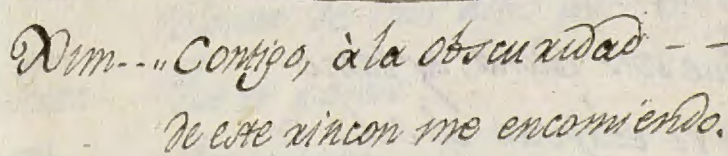 Xim--.,, Contigo, à la obscuridad - -
de este rincon me encomiendo.